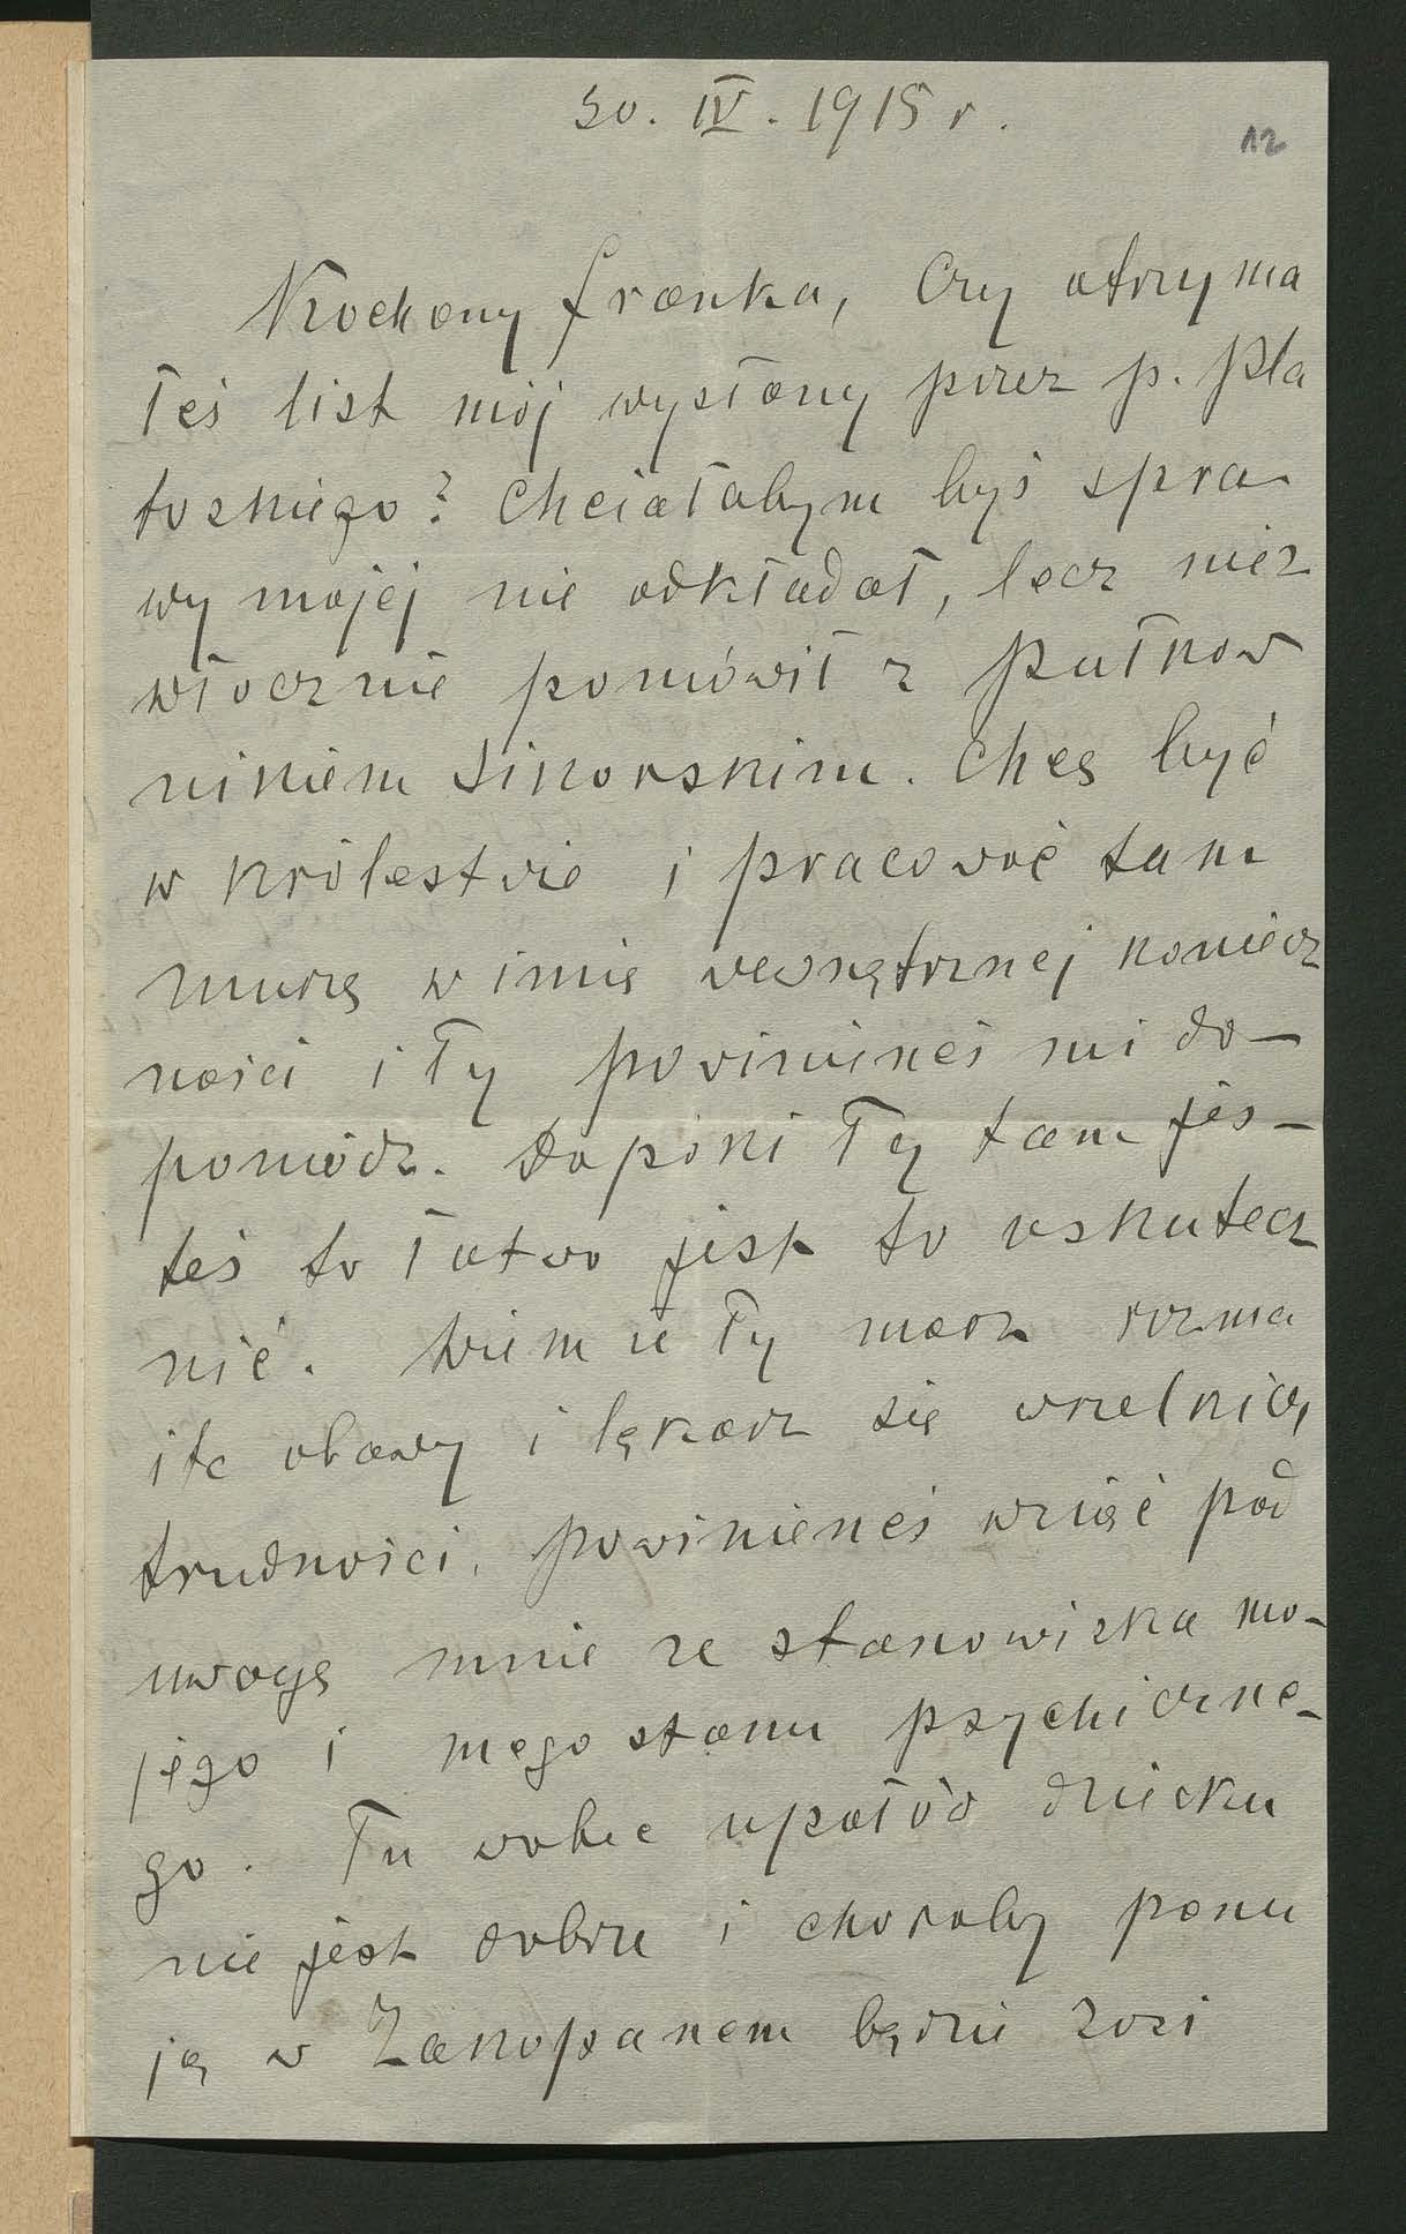 30. IV. 1915 r.
12
Kochany Franka, Czy otrzyma
łeś list mój wysłany przez p. Pła
toskiego? Chciałabym byś spra-
wy mojej nie odkładał, lecz niez
włocznie pomówił z pułkow
nikiem Sikorskim. Chcę być
w Królestwie i pracować tam
muszę w imię wewnętrznej koniecz
ności i Ty powinieneś mi do-
pomódz. Dopóki Ty tam jes-
teś to łatwo jest to uskutecz
nić. Wiem że Ty masz rozma
ite obawy i lękasz się wszelkich
trudności. Powinieneś wziąć pod
uwagę mnie ze stanowiska mo-
jego i mego stanu psychiczne-
go. Tu wobec upałów dziecku
nie jest dobrze i choroby panu
ją w Zakopanem będzie Zosi